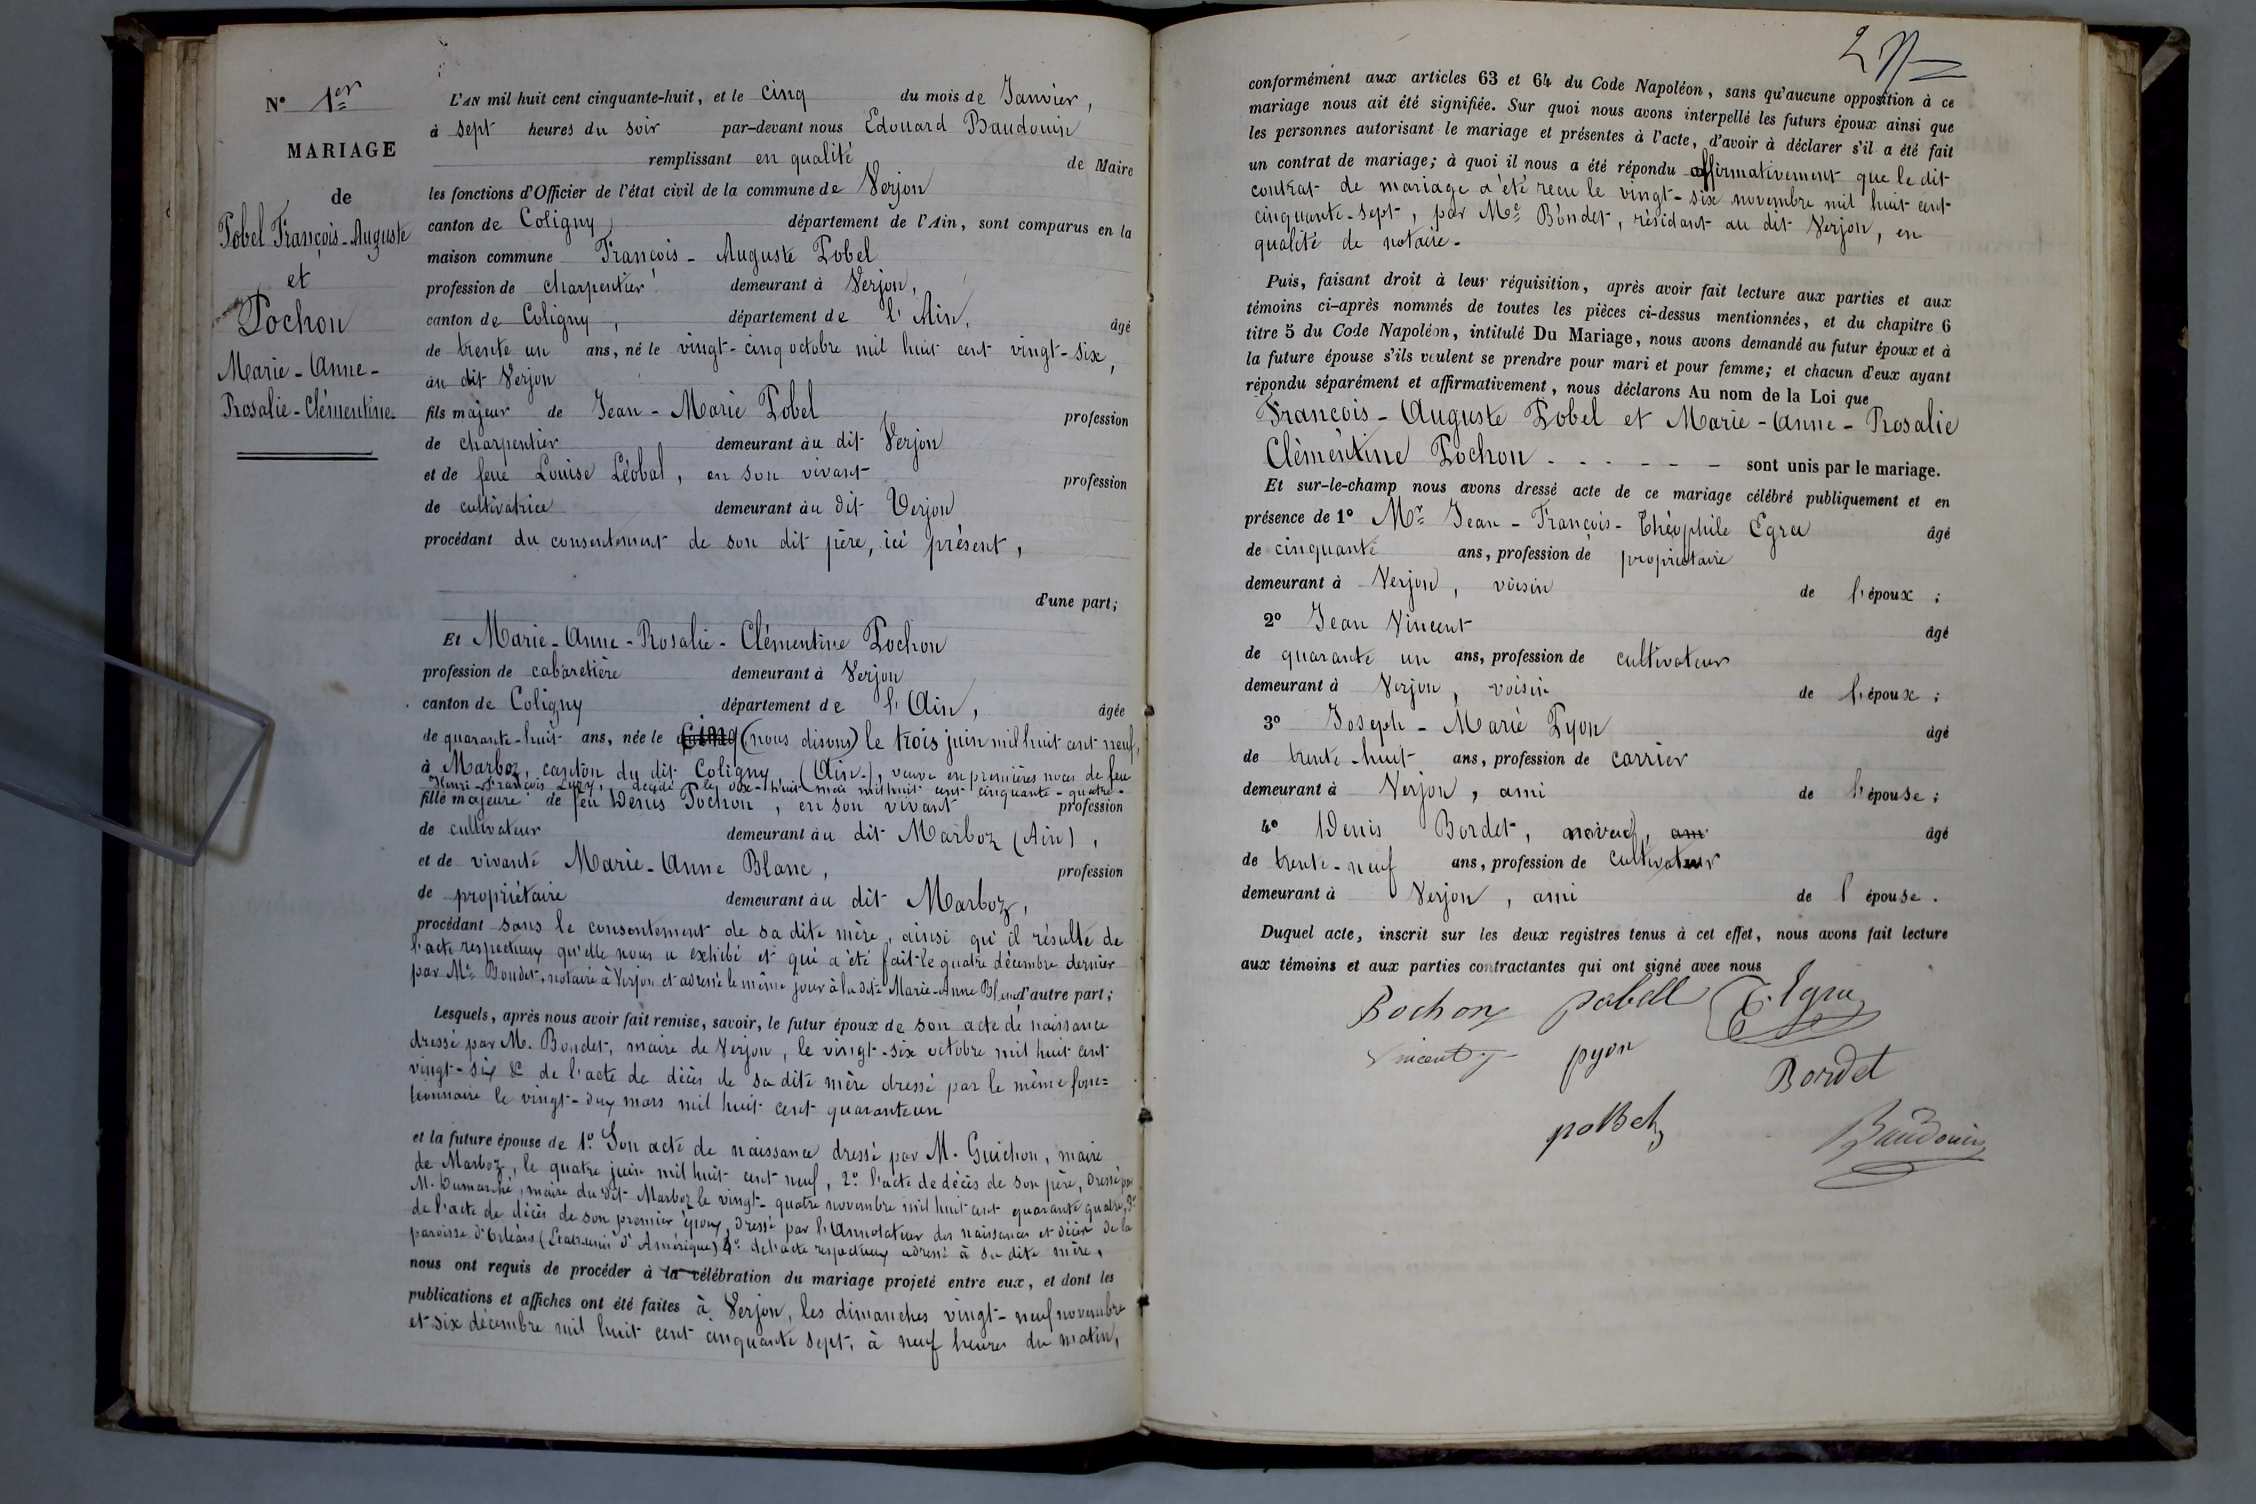 N° 1er
MARIAGE
de
Pobel François-Auguste
et
Pochon
Marie-Anne-
Rosalie-Clémentine.
L'AN mil huit cent cinquante-huit, et le cinq du mois de Janvier,
à sept heures du soir par-devant nous Edouard Baudouin
remplissant en qualité de Maire
les fonctions d'Officier de l'état civil de la commune de Verjon
canton de Coligny département de l'Ain, sont comparus en la
maison commune François-Auguste Pobel
profession de charpentier demeurant à Verjon,
canton de Coligny, département de l'Ain, âgé
de trente un ans, né le vingt-cinq octobre mil huit cent vingt-six,
au dit Verjon
fils majeur de Jean-Marie Pobel, profession
de charpentier demeurant au dit Verjon
et de feue Louise Léobal, en son vivant profession
de cultivatrice demeurant au dit Verjon
procédant du consentement de son dit père, ici présent,
d'une part;
Et Marie-Anne-Rosalie-Clémentine Pochon
profession de cabaretière demeurant à Verjon
canton de Coligny département de l'Ain, âgée
de quarante-huit ans, née le cinq (nous disons) le trois juin mil huit cent neuf,
à Marboz, canton du dit Coligny, (Ain), veuve en premières noces de feu
Henri-François décédé le dix-huit mai mil huit cent cinquante-quatre-
fille majeure de feu Denis Pochon, en son vivant profession
de cultivateur demeurant au dit Marboz (Ain),
et de vivante Marie-Anne Blanc, profession
de propriétaire demeurant au dit Marboz,
procédant sans le consentement de sa dite mère, ainsi qu'il résulte de
l'acte respectueux qu'elle nous a exhibé et qui a été fait le quatre décembre dernier
par Me Bondet, notaire à Verjon et adressé le même jour à la dite Marie-Anne Blanc d'autre part;
Lesquels, après nous avoir fait remise, savoir, le futur époux de son acte de naissance
dressé par M. Bondet, maire de Verjon, le vingt-six octobre mil huit cent
vingt-six & de l'acte de décès de sa dite mère dressé par le même fonc=
tionnaire le vingt-deux mars mil huit cent quarante un
et la future épouse de 1° Son acte de naissance dressé par M. Guichon, maire
de Marboz, le quatre juin mil huit cent neuf, 2° l'acte de décès de son père, dressé par
M. Dumarché, maire du dit Marboz le vingt-quatre novembre mil huit cent quarante quatre, 3°
de l'acte de décès de son premier époux, dressé par l'Annotateur des naissances et décès de la
paroisse d'Orléans (Etats-unis d'Amérique) 4° de l'acte respectueux adressé à sa dite mère,
nous ont requis de procéder à la célébration du mariage projeté entre eux, et dont les
publications et affiches ont été faites à Verjon, les dimanches vingt-neuf novembre
et six décembre mil huit cent cinquante sept, à neuf heures du matin,
2
conformément aux articles 63 et 64 du Code Napoléon, sans qu'aucune opposition à ce
mariage nous ait été signifiée. Sur quoi nous avons interpellé les futurs époux ainsi que
les personnes autorisant le mariage et présentes à l'acte, d'avoir à déclarer s'il a été fait
un contrat de mariage; à quoi il nous a été répondu affirmativement que le dit
contrat de mariage a été reçu le vingt-six novembre mil huit cent
cinquante-sept, par Me Bondet, résidant au dit Verjon, en
qualité de notaire.
Puis, faisant droit à leur réquisition, après avoir fait lecture aux parties et aux
témoins ci-après nommés de toutes les pièces ci-dessus mentionnées, et du chapitre 6
titre 5 du Code Napoléon, intitulé Du Mariage, nous avons demandé au futur époux et à
la future épouse s'ils veulent se prendre pour mari et pour femme; et chacun d'eux ayant
répondu séparément et affirmativement, nous déclarons Au nom de la Loi que
François-Auguste Pobel et Marie-Anne-Rosalie
Clémentine Pochon - - - - - - sont unis par le mariage.
Et sur-le-champ nous avons dressé acte de ce mariage célébré publiquement et en
présence de 1° Mr Jean-François-Théophile Egra âgé
de cinquante ans, profession de propriétaire
demeurant à Verjon, voisin de l'époux;
2° Jean Vincent âgé
de quarante un ans, profession de cultivateur
demeurant à Verjon, voisin de l'époux;
3° Joseph-Marie Pyon âgé
de trente-huit ans, profession de carrier
demeurant à Verjon, ami de l'épouse;
4° Denis Bordet, âgé
de trente-neuf ans, profession de cultivateur
demeurant à Verjon, ami de l'épouse.
Duquel acte, inscrit sur les deux registres tenus à cet effet, nous avons fait lecture
aux témoins et aux parties contractantes qui ont signé avec nous
Pochon pobell T. Egra
Vincent pyon Bordet
poBel Baudouin